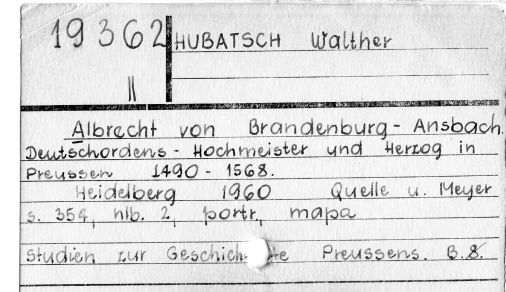 19362 HUBATSCH Walther
II
Albrecht von Brandenburg-Ansbach.
Deutschordens-Hochmeister und Herzog in
Preussen 1490-1568.
Heidelberg 1960 Quelle u. Meyer
s. 354, nlb. 2, portr., mapa
Studien zur Geschichte Preussens. B.8.